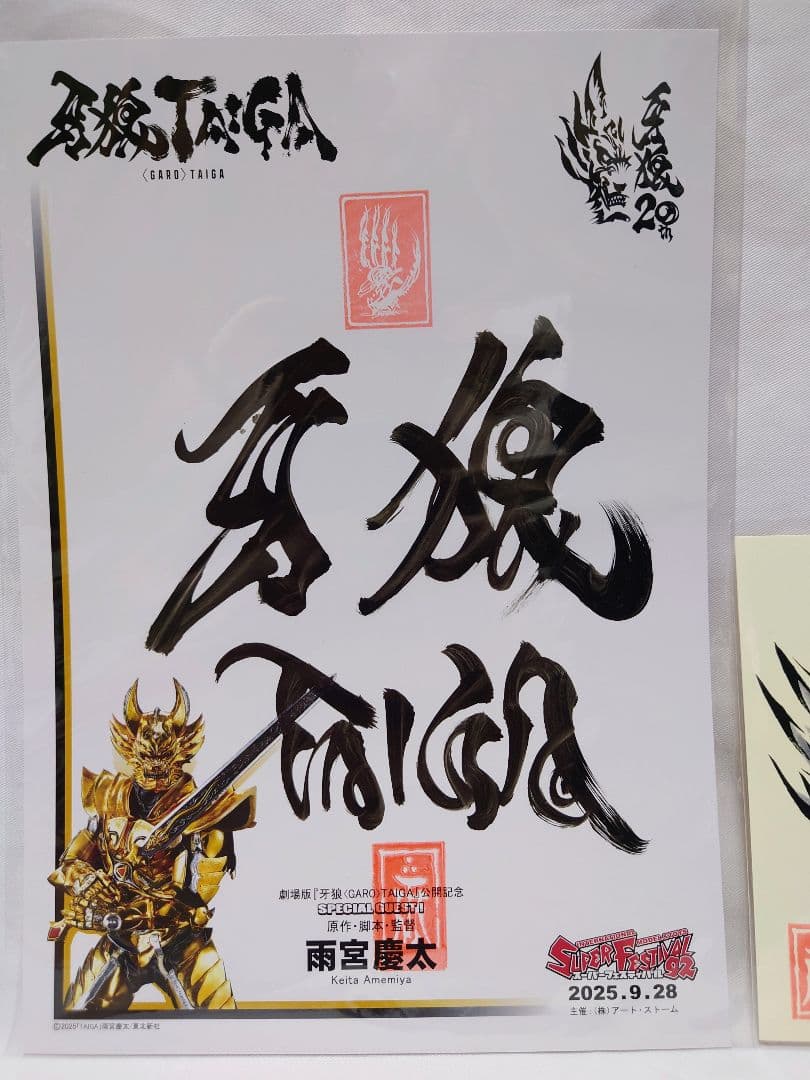 牙狼 TAIGA
〈GARO〉TAIGA
牙狼
20th
牙狼
TAIGA
劇場版『牙狼〈GARO〉TAIGA』公開記念
SPECIAL GUEST!
原作・脚本・監督
雨宮慶太
Keita Amemiya
INTERNATIONAL MODEL&TOYS
SUPER FESTIVAL 92
スーパーフェスティバル
2025.9.28
主催：(株)アート・ストーム
©2025「TAIGA」雨宮慶太/東北新社